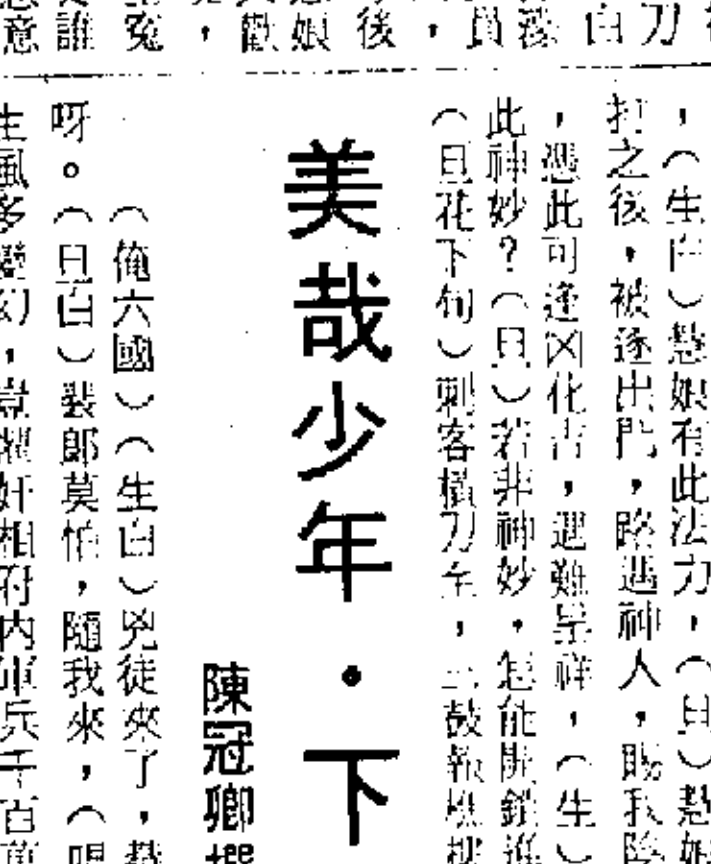 意誰冤，歡娘後，員濠白刀
，（生白）慧娘有此法力，（旦）慧娘
打之後，被逐出門，路遇神人，賜我
，憑此可逢凶化吉，遇難呈祥，（生）
此神妙？（旦）若非神妙．怎能開鎖進
（旦花下句）刺客橫刀至，三鼓報樵樓
美哉少年・下
陳冠卿撰
（俺六國）（生白）兇徒來了，
呀。（旦白）裴郎莫怕，隨我來，（唱
生風多變幻，豈懼奸相府內軍兵千百萬